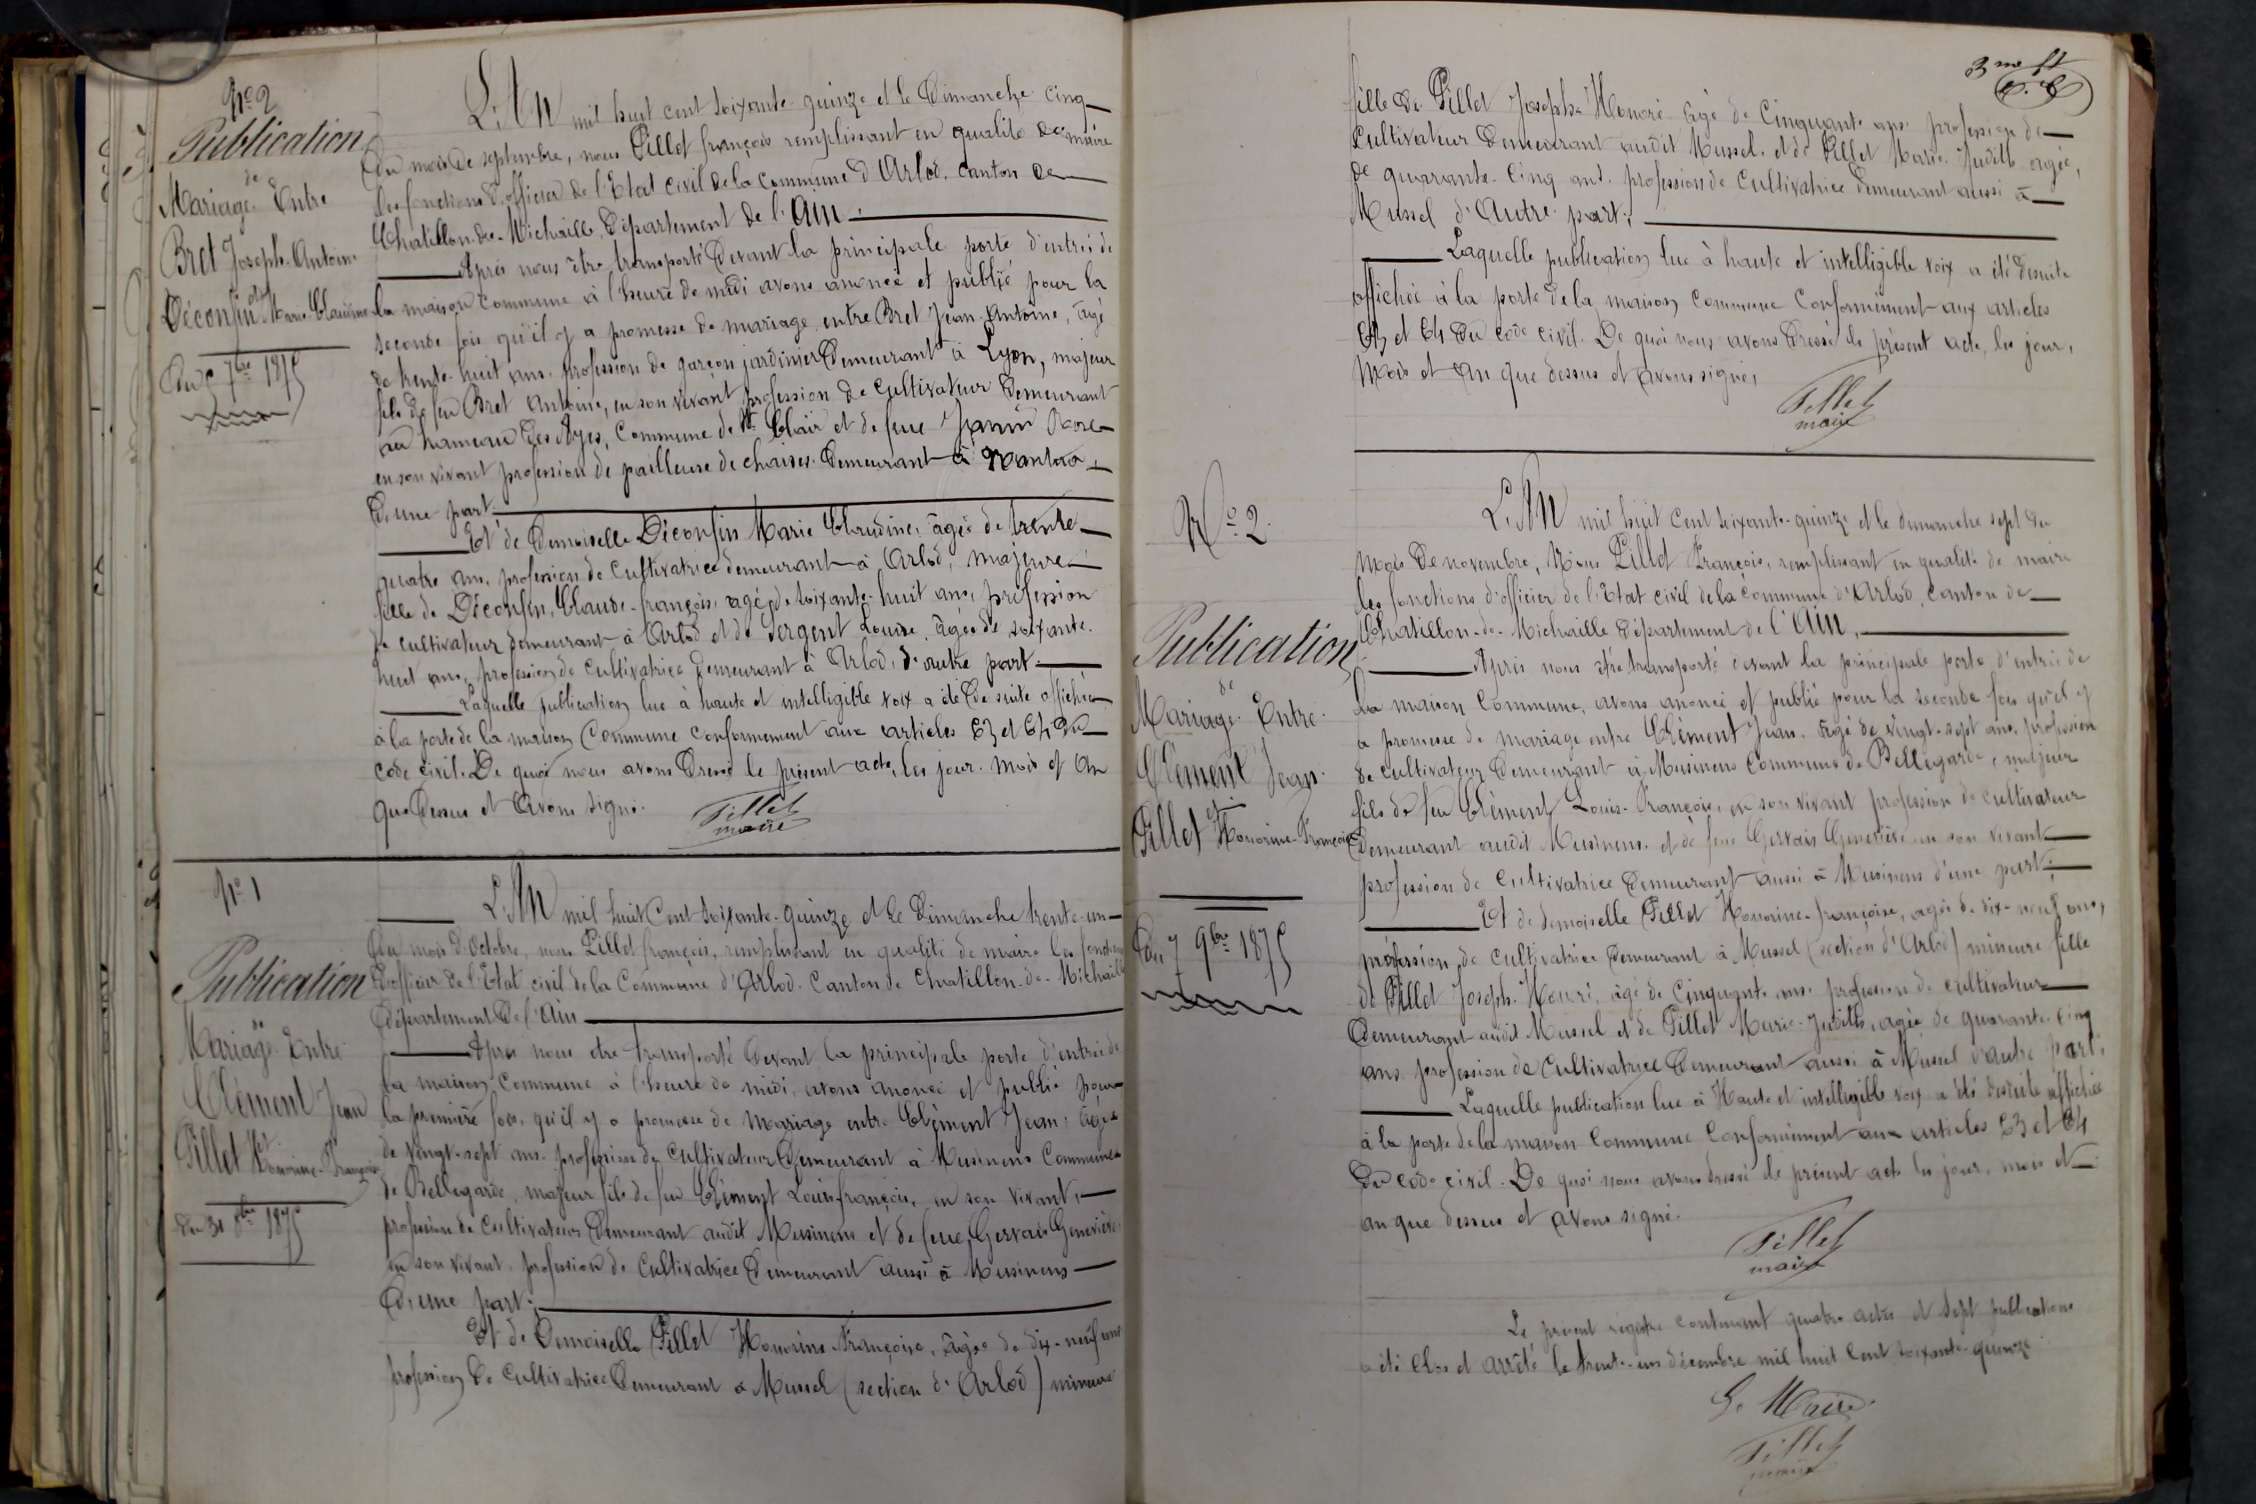 No 2
Publication
de
Mariage Entre
Bret Joseph-Antoine
et
Déconfin Marie Claudine
Du 5 7bre 1875
L'An mil huit cent soixante-quinze et le Dimanche cinq
du mois de septembre, nous Pillet françois remplissant en qualité de maire
les fonctions d'officier de l'Etat civil de la commune d'Arlod, canton de
Chatillon-de-Michaille, Département de l'Ain.
Après nous être transporté devant la principale porte d'entrée de
la maison commune à l'heure de midi avons anoncé et publié pour la
seconde fois qu'il y a promesse de mariage entre Bret Jean-Antoine, âgé
de trente-huit ans, profession de garçon jardinier Demeurant à Lyon, majeur
fils de feu Bret Antoine, en son vivant profession de cultivateur Demeurant
au hameau des Ayes, Commune de St Clair et de feue Janin
en son vivant profession de pailleuse de chaises Demeurant à Nantua
D'une part
Et de Demoiselle Déconfin Marie Claudine, âgée de trente
quatre ans, profession de Cultivatrice demeurant à Arlod, majeure
fille de Déconfin, Claude-françois, agé de soixante-huit ans, profession
de cultivateur demeurant à Arlod et de Sergent Louise, âgée de soixante-
huit ans, profession de Cultivatrice Demeurant à Arlod, d'autre part.
Laquelle publication lue à haute et intelligible voix a été De suite affichée
à la porte de la maison Commune conformement aux articles 63 et 64 du
Code civil. De quoi nous avons Dressé le présent acte, les jour, mois et An
que Dessus et Avons signé.
Pillet
maire
No 1
Publication
de
Mariage Entre
Clément Jean
et
Pillet Honorine-Françoise
Du 31 8bre 1875
L'An mil huit Cent soixante-quinze et le Dimanche trente-un
du mois d'Octobre, nous Pillet françois, remplissant en qualité de maire les fonctions
d'officier de l'Etat civil de la Commune d'Arlod, Canton de Chatillon-de-Michaille
Département De l'Ain
Après nous etre transporté devant la principale porte d'entrée de
la maison Commune à l'heure de midi, avons anoncé et publié pour
la première fois, qu'il y a promesse de Mariage entre Clément Jean, âgé
de vingt-sept ans, profession de Cultivateur Demeurant à Musinens Commune
de Bellegarde, majeur fils de feu Clément Louis françois, en son vivant,
profession de Cultivateur Demeurant audit Musinens et de feue, Gervais Geneviève
en son vivant, profession de Cultivatrice Demeurant aussi à Musinens
D'une part;
Et de Demoiselle Pillet Honorine Françoise, âgée de dix-neuf ans
profession de Cultivatrice Demeurant à Mussel (section d'Arlod) mineure
3me ft
fille de Pillet Joseph-Honoré âgé de Cinquante ans, profession de
Cultivateur Demeurant audit Mussel et de Pillet Marie Judith agée,
de quarante-cinq ans, profession de Cultivatrice Demeurant aussi à
Mussel d'Autre part;
Laquelle publication lue à haute et intelligible voix a été desuite
affichée à la porte de la maison commune conformément aux articles
63 et 64 du code civil. De quoi nous avons Dressé le présent acte, les jour,
mois et an que dessus et avons signé,
Pillet
maire
No 2.
Publication
de
Mariage Entre
Clément Jean
et
Pillet Honorine-Françoise
Du 7 9bre 1875
L'An mil huit Cent soixante-quinze et le dimanche sept du
mois De novembre, Nous Pillet François, remplissant en qualité de maire
les fonctions d'officier de l'Etat civil de la commune d'Arlod, Canton de
Chatillon-de-Michaille Département de l'Ain,
Après nous être transporté devant la principale porte d'entrée de
la maison Commune, avons anoncé et publié pour la seconde fois qu'il y
a promesse de mariage entre Clément Jean, âgé de vingt-sept ans, profession
de cultivateur Demeurant à Musinens Commune de Bellegarde, majeur
fils de feu Clément Louis-François, en son vivant profession de cultivateur
Demeurant audit Musinens et de feue Gervais Geneviève en son vivant
profession de cultivatrice Demeurant aussi à Musinens d'une part;
Et de demoiselle Pillet Honorine-françoise, agée de dix-neuf ans,
profession, de cultivatrice Demeurant à Mussel (section d'Arlod) mineure fille
de Pillet Joseph-Honoré, âgé de Cinquante ans, profession de cultivateur
Demeurant audit Mussel et de Pillet Marie-Judith, agée de quarante-cinq
ans profession de Cultivatrice Demeurant aussi à Mussel d'autre part.
Laquelle publication lue à Haute et intelligible voix a été desuite affichée
à la porte de la maison Commune Conformément aux articles 63 et 64
Du code civil. De quoi nous avons dressé le présent acte les jour, mois et
an que dessus et avons signé.
Pillet
maire
Le présent registre contenant quatre actes et sept publications
a été Clos et arrêté le trente-un décembre mil huit cent soixante-quinze
Le Maire
Pillet
maire